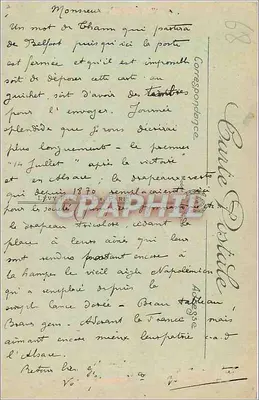 Monsieur
Un mot de Thann qui partira
de Belfort puisqu'ici la poste
est fermée et qu'il est impossible
soit de déposer cette carte au
guichet soit d'avoir des timbres
pour l'envoyer. Journée
splendide que je vous décrirai
plus longuement - le premier
"14 Juillet" après la victoire
et en Alsace; les drapeaux verts
qui depuis 1870 remplaçaient ici
le drapeau tricolore, cédant la
place à leurs aînés qui leur
sont rendus portant encore à
la hampe le vieil aigle Napoléonien
qui a remplacé depuis la
lance dorée - Beau tableau
Braves gens. Adorant la France mais
aimant encore mieux leur patrie c.a.d
l'Alsace.
Carte Postale
Correspondance
Adresse
CARTAPHILIE